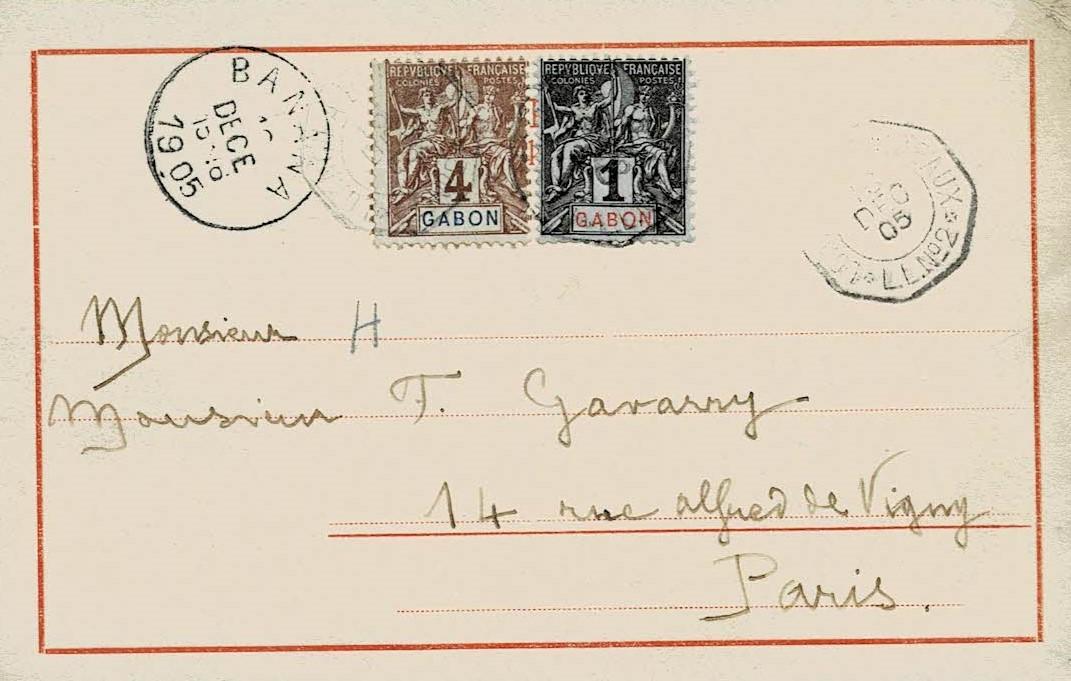 BANANA
DECE
1905
REPUBLIQUE FRANÇAISE
COLONIES POSTES
4
GABON
REPUBLIQUE FRANÇAISE
COLONIES POSTES
1
GABON
DEC
05
L.L.Nº2
Monsieur H
Monsieur T. Gavarry
14 rue alfred de Vigny
Paris.